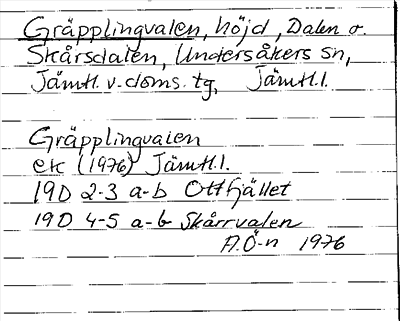 Gräpplingvalen, höjd, Dalen o.
Skårsdalen, Undersåkers sn,
Jämtl. v. doms. tg, Jämtl.l.
Gräpplingvalen
ek (1976) Jämtl.l.
19D 2-3 a-b Ottfjället
19D 4-5 a-b Skårrvalen
A.Ö-n 1976